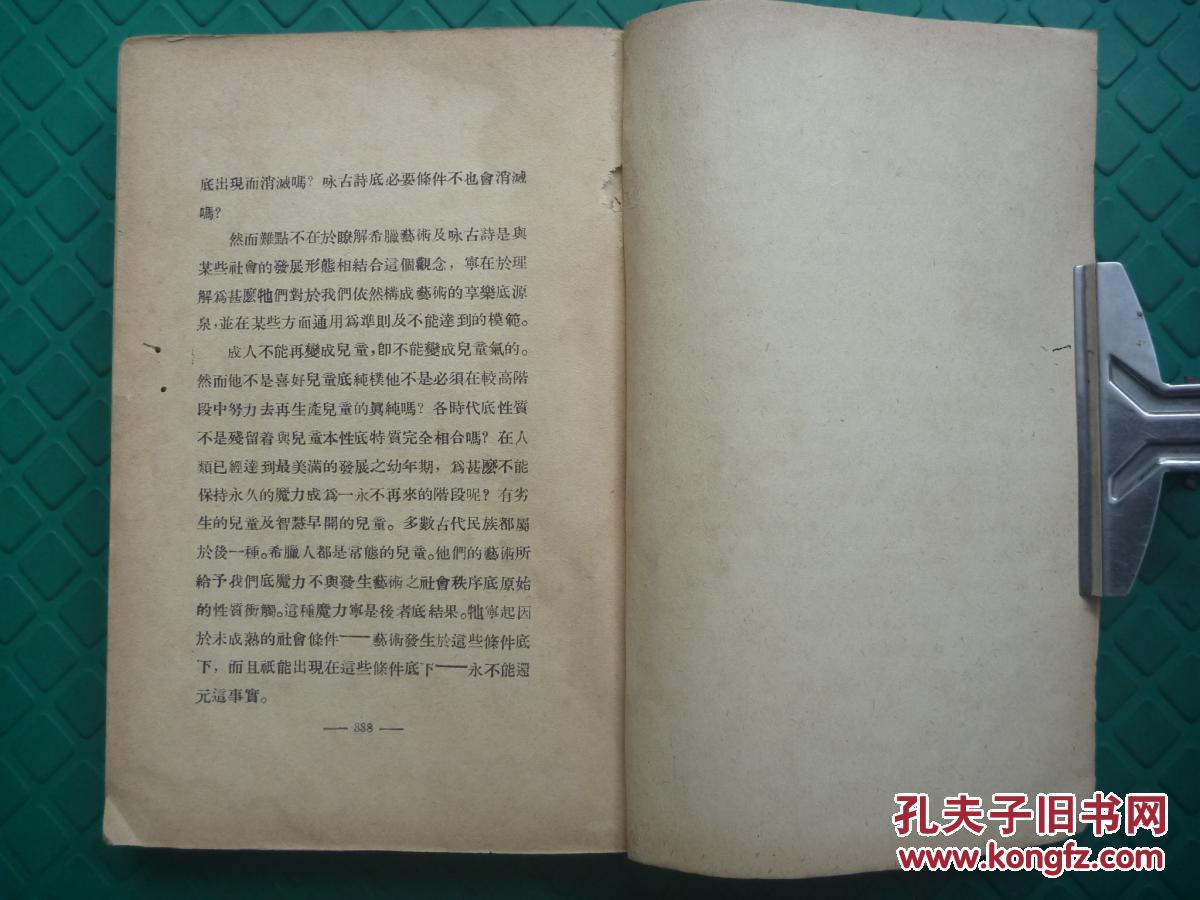 底出現而消滅嗎？咏古詩底必要條件不也會消滅
嗎？
然而難點不在於瞭解希臘藝術及咏古詩是與
某些社會的發展形態相結合這個觀念，寧在於理
解爲甚麼牠們對於我們依然構成藝術的享樂底源
泉，並在某些方面通用爲準則及不能達到的模範。
成人不能再變成兒童，卽不能變成兒童氣的。
然而他不是喜好兒童底純樸他不是必須在較高階
段中努力去再生產兒童的眞純嗎？各時代底性質
不是殘留着與兒童本性底特質完全相合嗎？在人
類已經達到最美滿的發展之幼年期，爲甚麼不能
保持永久的魔力成爲一永不再來的階段呢？有劣
生的兒童及智慧早開的兒童。多數古代民族都屬
於後一種。希臘人都是常態的兒童。他們的藝術所
給予我們底魔力不與發生藝術之社會秩序底原始
的性質衝觸。這種魔力寧是後者底結果。牠寧起因
於未成熟的社會條件——藝術發生於這些條件底
下，而且祇能出現在這些條件底下——永不能還
元這事實。
— 338 —
孔夫子旧书网
www.kongfz.com